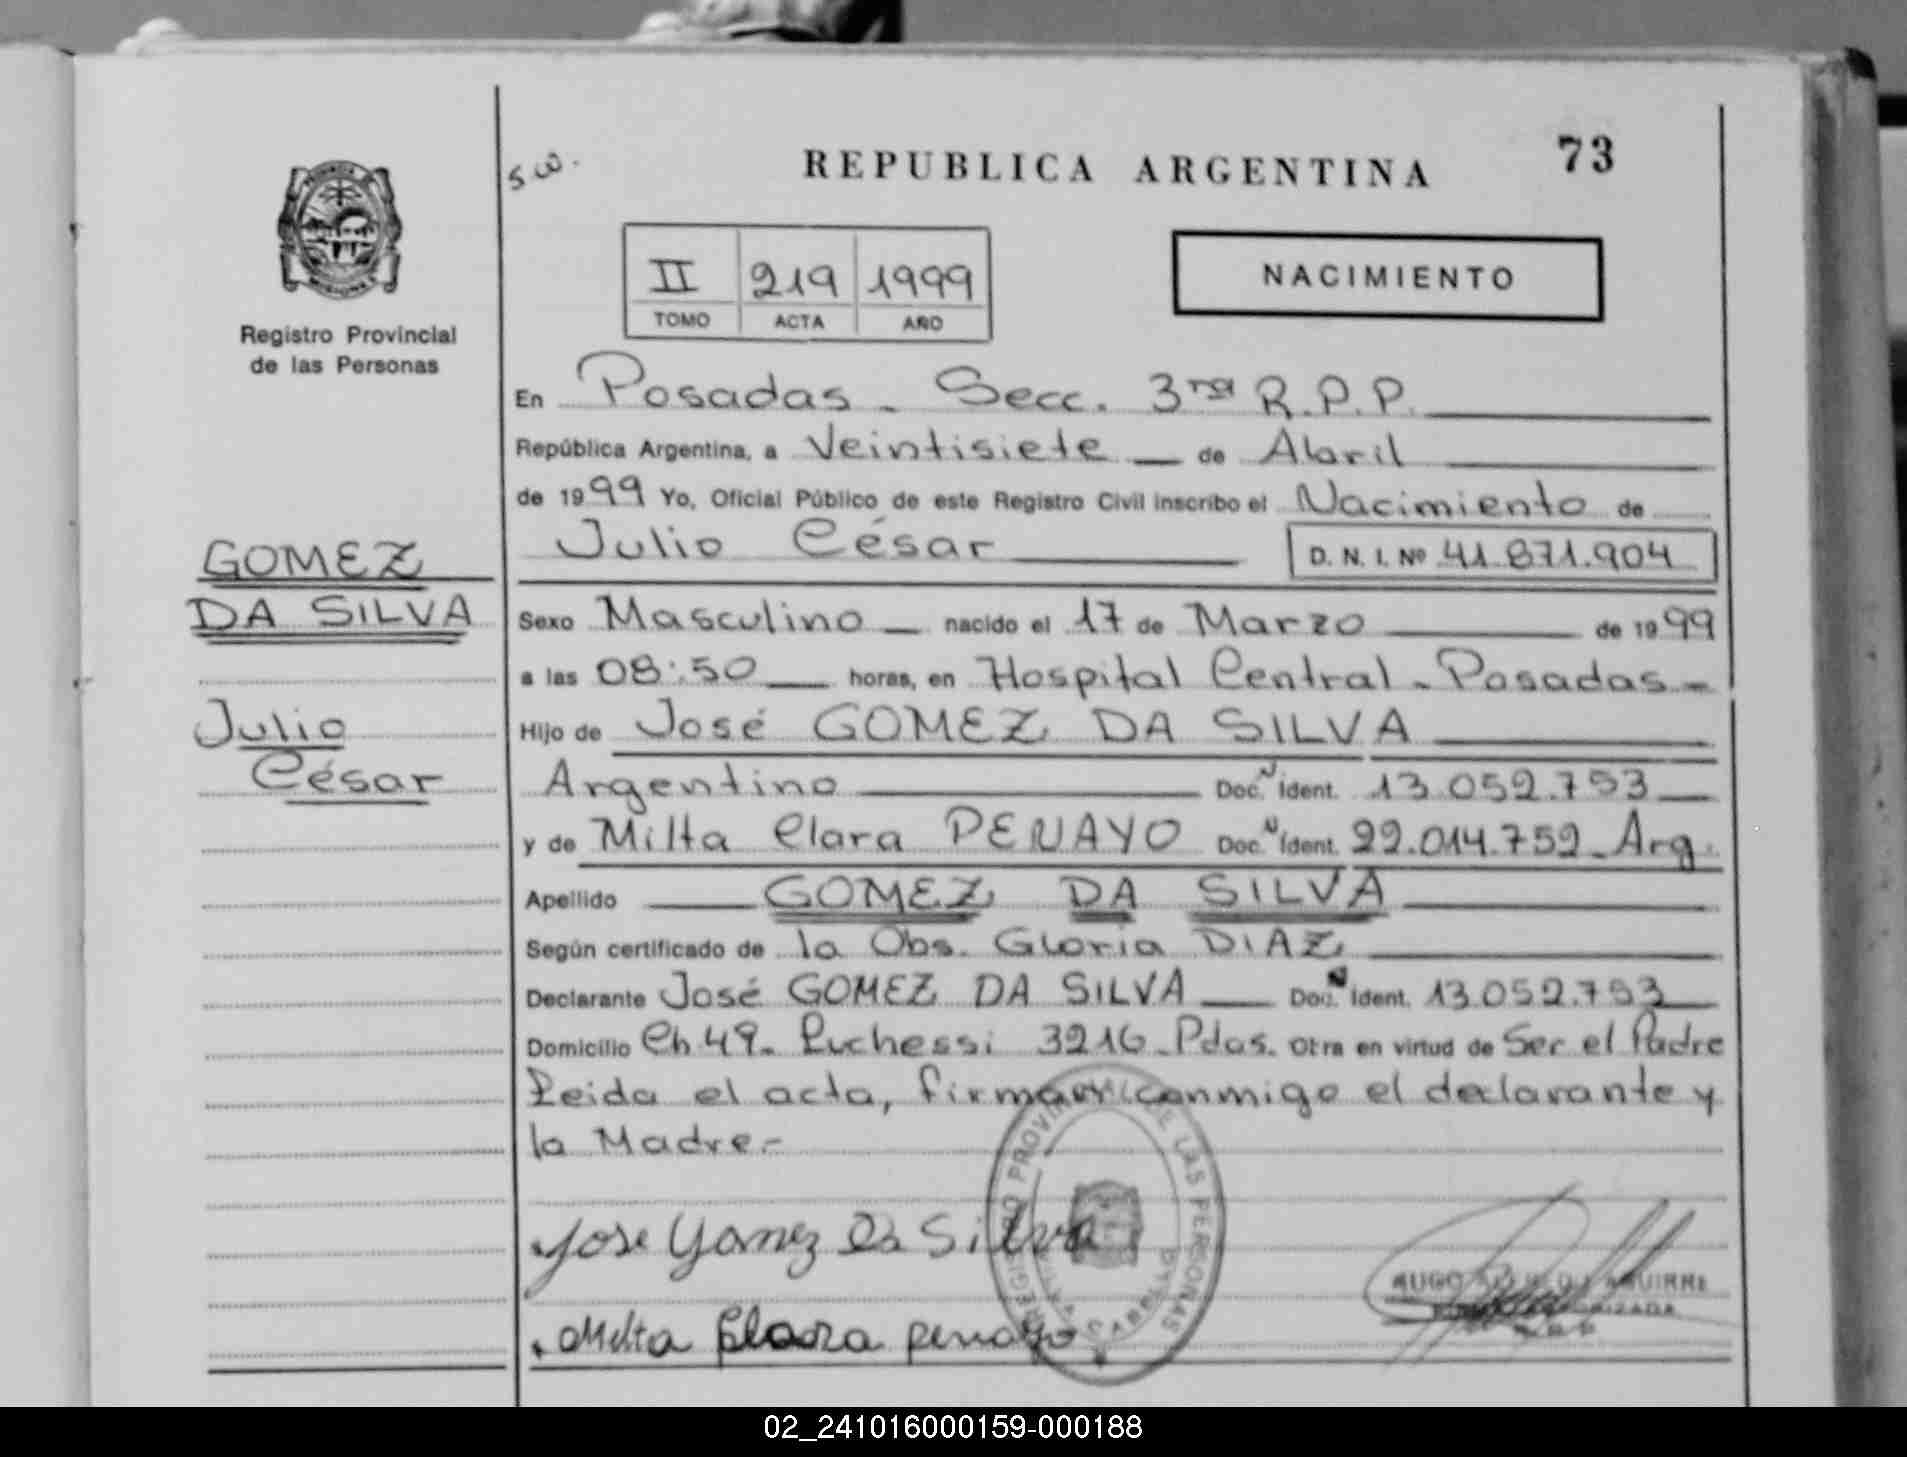 s.w.
REPUBLICA ARGENTINA
73
II 219 1999
TOMO ACTA AÑO
NACIMIENTO
Registro Provincial
de las Personas
En Posadas - Secc. 3ra R.P.P.
República Argentina, a Veintisiete de Abril
de 1999 Yo, Oficial Público de este Registro Civil inscribo el Nacimiento de
Julio César D. N. I. Nº 41.871.904
GOMEZ
DA SILVA
Julio
César
Sexo Masculino nacido el 17 de Marzo de 1999
a las 08:50 horas, en Hospital Central - Posadas -
Hijo de José GOMEZ DA SILVA
Argentino Doc. N Ident. 13.052.753
y de Milta Clara PENAYO Doc. N Ident. 22.014.752 - Arg.
Apellido GOMEZ DA SILVA
Según certificado de la Obs. Gloria DIAZ
Declarante José GOMEZ DA SILVA Doc. N Ident. 13.052.753
Domicilio Ch. 49 - Luchessi 3216 - Pdas. Otra en virtud de Ser el Padre
Leida el acta, firman conmigo el declarante y
la Madre.-
REGISTRO PROVINCIAL DE LAS PERSONAS
Jose Gomez Da Silva
HUGO ALFREDO AGUIRRE
Milta Clara penayo
02_241016000159-000188